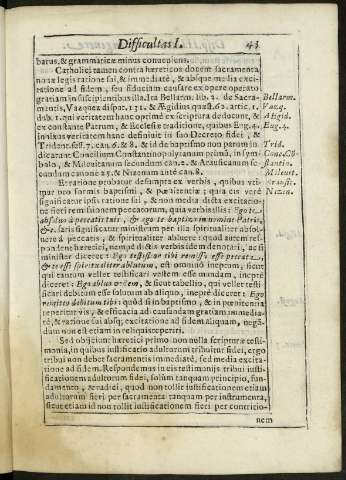 Difficultas I. 43
barus, & grammaticæ minus conueniens.
Catholici tamen contra hæreticos docent sacramenta
nouæ legis ratione sui, & immediatè, & absque media exci-
tatione ad fidem, seu fiduciam causare ex opere operato
gratiam in suscipientibus illa. Ita Bellarm. lib. 2. de Sacra-
mentis, Vazquez disput. 131. & Ægidius quæst. 62. artic. 1.
dub. 1. qui veritatem hanc optimè ex scriptura docent, &
ex constante Patrum, & Ecclesiæ traditione, quibus Eug. 4.
in suo Decreto fidei, &
Trident. sess. 7. can. 6. & 8. & id de baptismo non parum in-
dicarant Concilium Constantinopolitanum primũ, in sym-
bolo, & Mileuitanum secundum can. 2. & Arausicanum se-
cundum canone 25. & Nizenum ante can. 8.
Bellarm.
Vazq.
Ægid.
Eug. 4.
Trid.
Conc. Cõ-
stantin.
Mileuit.
Arausic.
Nizen.
Et ratione probatur desumpta ex verbis, quibus vti-
mur pro formis baptismi, & pœnitentiæ, quia eis verè
significatur ipsis ratione sui, & non media dicta excitatio-
ne fieri remissionem peccatorum, quia verbis illis: Ego te
absoluo à peccatis tuis, & ego te baptizo in nomine Patris,
&c. satis significatur ministrum per illa spiritualiter absol-
uere à peccatis, & spiritualiter abluere: quod autem res-
pondent hæretici, nempè dictis verbis idem denotari, ac si
minister diceret: Ego testificor tibi remissa esse peccata,
& te esse spiritualiter ablutum, est omninò ineptum, sicut
qui tantum vellet testificari vestem esse mundam, ineptè
diceret: Ego abluo vestem, & sicut tabellio, qui vellet testi-
ficari debitum esse solutum ab aliquo, ineptè diceret: Ego
remitto debitum tibi: quòd si in baptismo, & in pœnitentia
reperitur vis, & efficacia ad causandam gratiam immedia-
tè, & ratione sui absq; excitatione ad fidem aliquam, negã-
dum non est etiam in reliquis reperiri.
Sed obijciunt hæretici primò non nulla scripturæ testi-
monia, in quibus iustificatio adultorum tribuitur fidei, ergo
tribui non debet sacramentis immediatè, sed media excita-
tione ad fidem. Respondemus in eis testimonijs tribui iusti-
ficationem adultorum fidei, solùm tanquam principio, fun-
damento, & radici, quod non tollit iustificationem etiam
adultorum fieri per sacramenta tanquam per instrumenta,
sicut etiam id non tollit iustificationem fieri per contritio-
nem